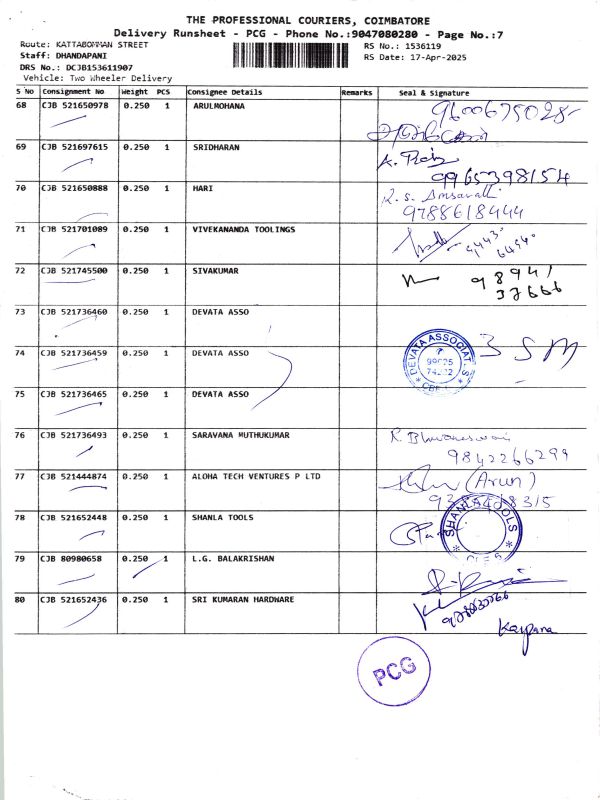 THE PROFESSIONAL COURIERS, COIMBATORE
Delivery Runsheet - PCG - Phone No.:9047080280 - Page No.:7
Route: KATTABOMMAN STREET RS No.: 1536119
Staff: DHANDAPANI RS Date: 17-Apr-2025
DRS No.: DCJB153611907
Vehicle: Two Wheeler Delivery
S No Consignment No Weight PCS Consignee Details Remarks Seal & Signature
68 CJB 521650978 0.250 1 ARULMOHANA 9600675028-
69 CJB 521697615 0.250 1 SRIDHARAN
9965398154
70 CJB 521650888 0.250 1 HARI R.S.
9788618444
71 CJB 521701089 0.250 1 VIVEKANANDA TOOLINGS
72 CJB 521745500 0.250 1 SIVAKUMAR 98941
37666
73 CJB 521736460 0.250 1 DEVATA ASSO
74 CJB 521736459 0.250 1 DEVATA ASSO DEVATA ASSOCIATES 3 SM
75 CJB 521736465 0.250 1 DEVATA ASSO
76 CJB 521736493 0.250 1 SARAVANA MUTHUKUMAR R. Bhuvaneswari
9842266299
77 CJB 521444874 0.250 1 ALOHA TECH VENTURES P LTD (Arun)
78 CJB 521652448 0.250 1 SHANLA TOOLS SHANLA TOOLS
79 CJB 80980658 0.250 1 L.G. BALAKRISHAN
80 CJB 521652436 0.250 1 SRI KUMARAN HARDWARE
Kalpana
PCG